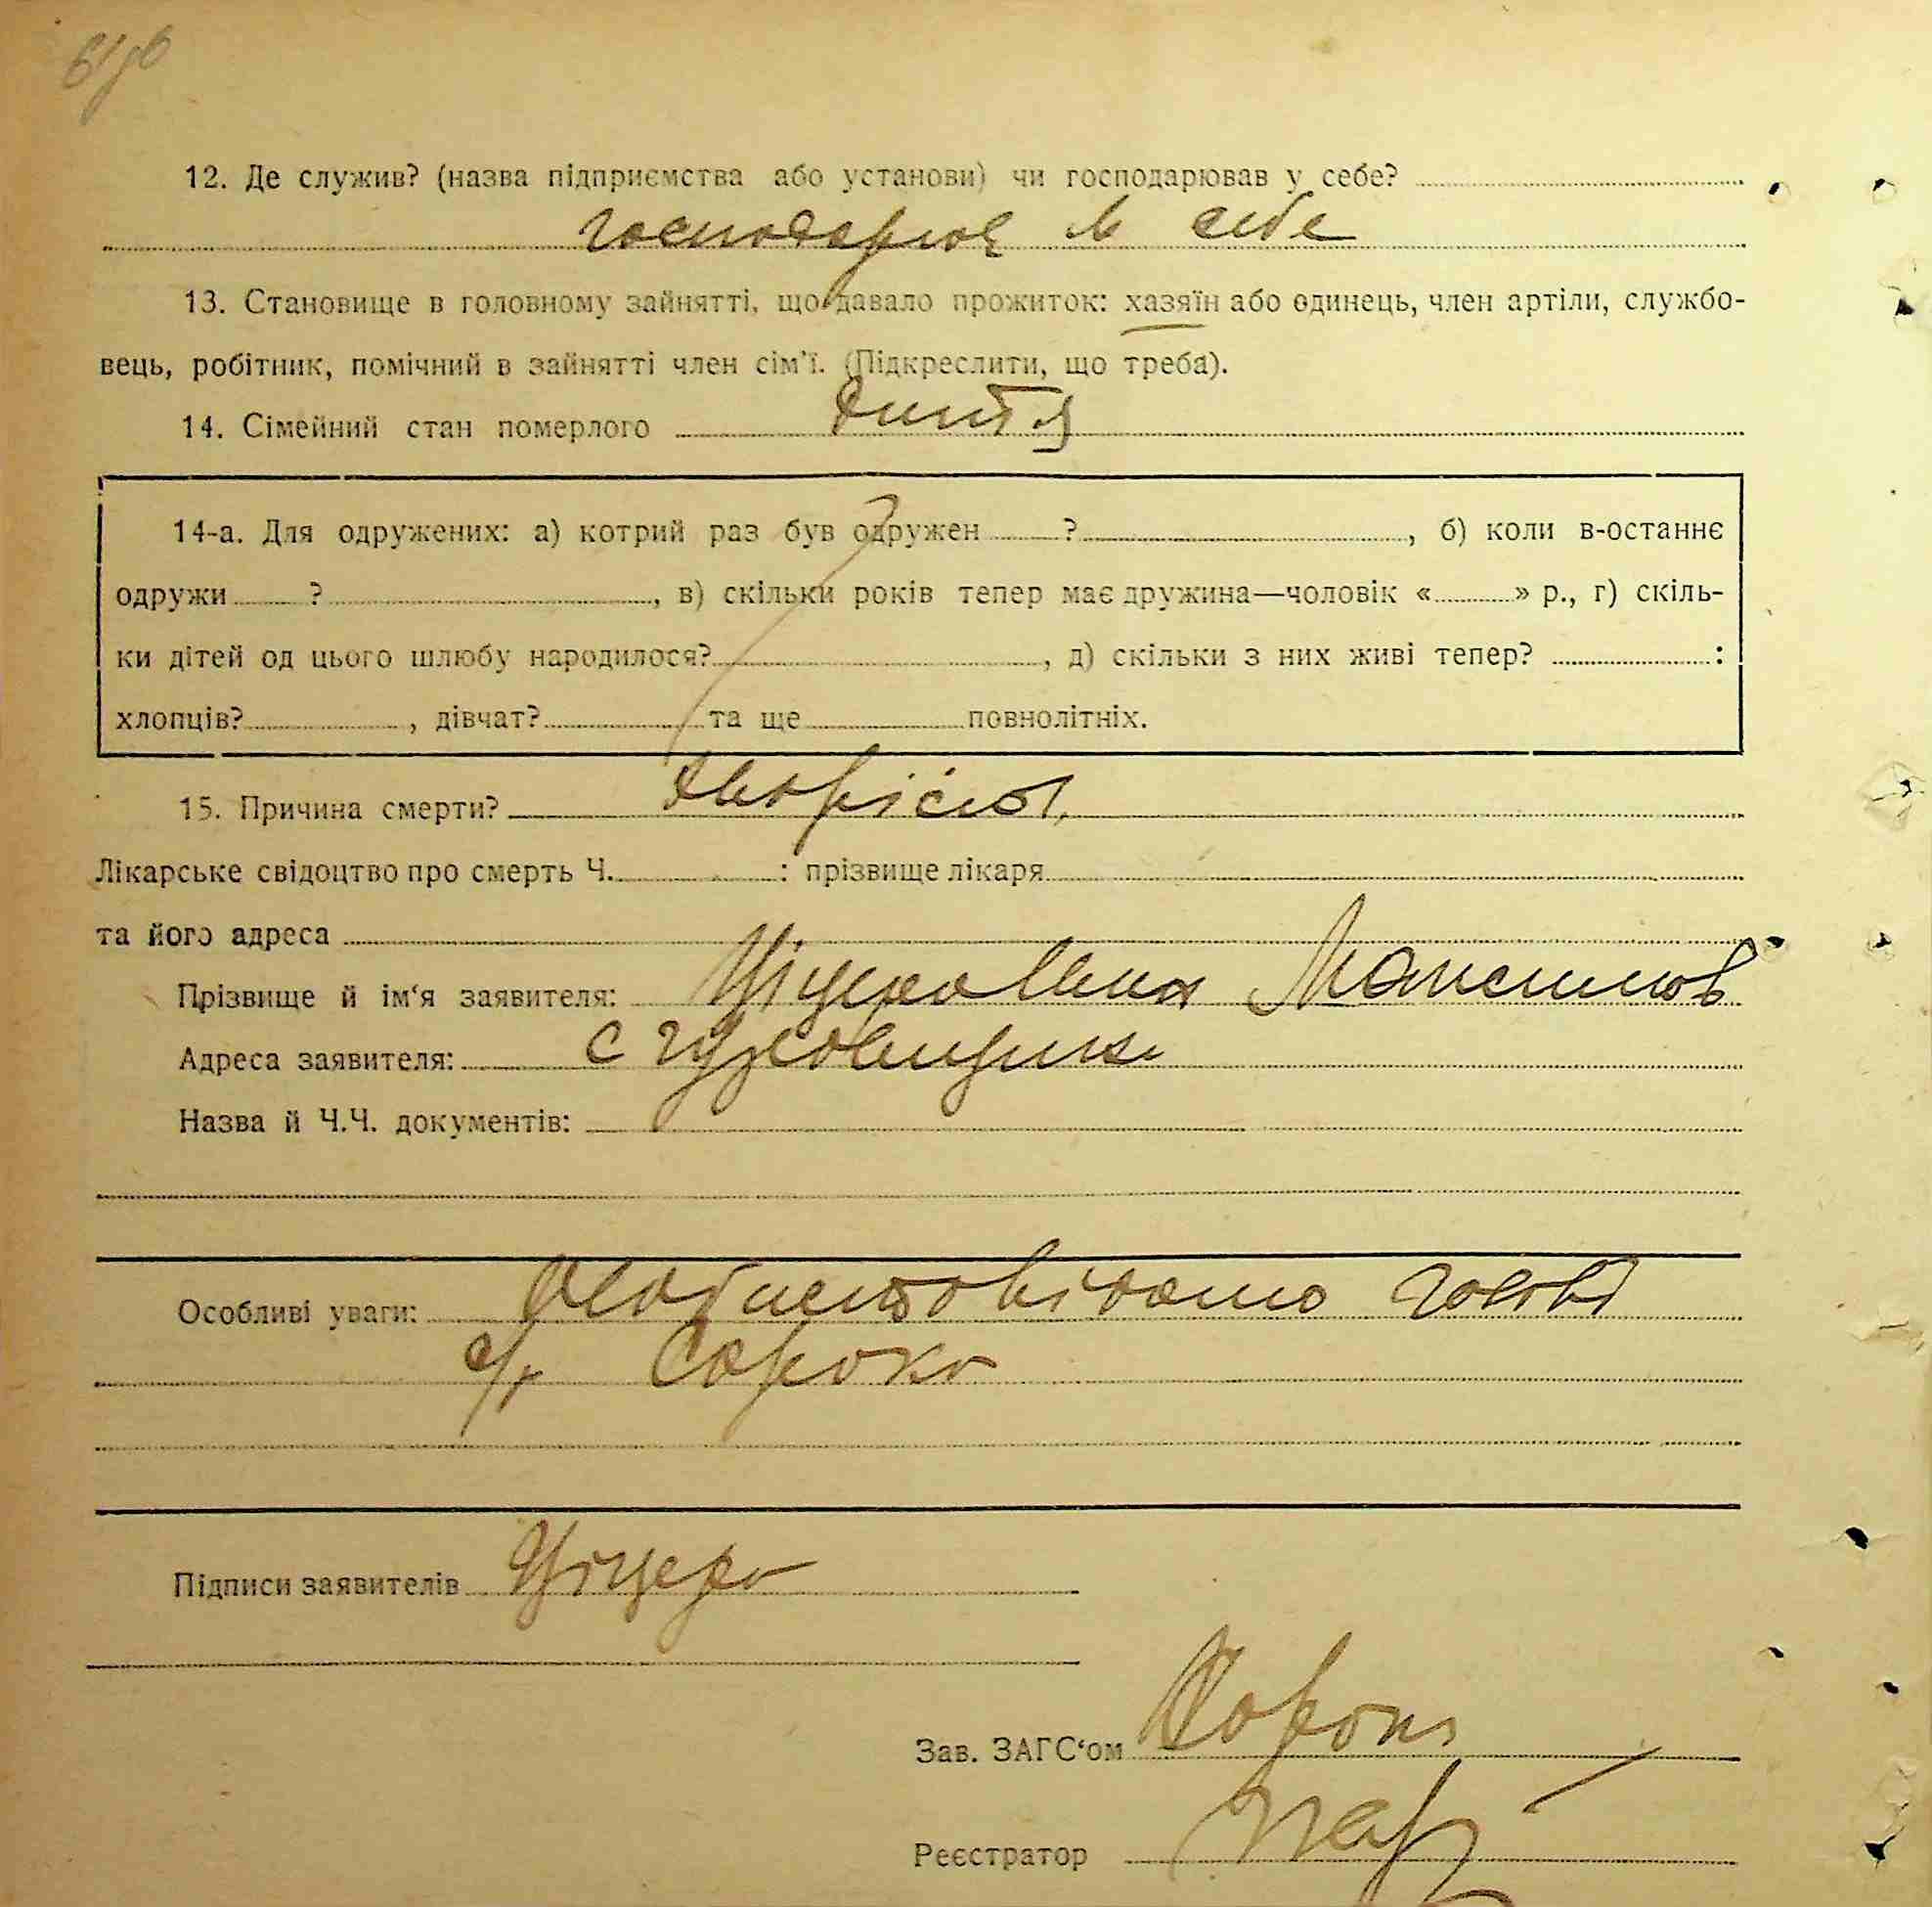 12. Де служив? (назва підприємства або установи) чи господарював у себе?
господарює в себе
13. Становище в головному зайнятті, що давало прожиток: хазяїн або одинець, член артіли, службо-
вець, робітник, помічний в зайнятті член сім'ї. (Підкреслити, що треба).
14. Сімейний стан померлого дитя
14-а. Для одружених: а) котрий раз був одружен ?, б) коли в-останнє
одружи ?, в) скільки років тепер має дружина—чоловік « » р., г) скіль-
ки дітей од цього шлюбу народилося?, д) скільки з них живі тепер? :
хлопців? , дівчат? та ще повнолітніх.
15. Причина смерти?
Лікарське свідоцтво про смерть Ч. : прізвище лікаря
та його адреса
Прізвище й ім'я заявителя:
Адреса заявителя: с
Назва й Ч.Ч. документів:
Особливі уваги: Особисто відомо голові
с/р Сорока
Підписи заявителів
Зав. ЗАГС'ом Сорока
Реєстратор